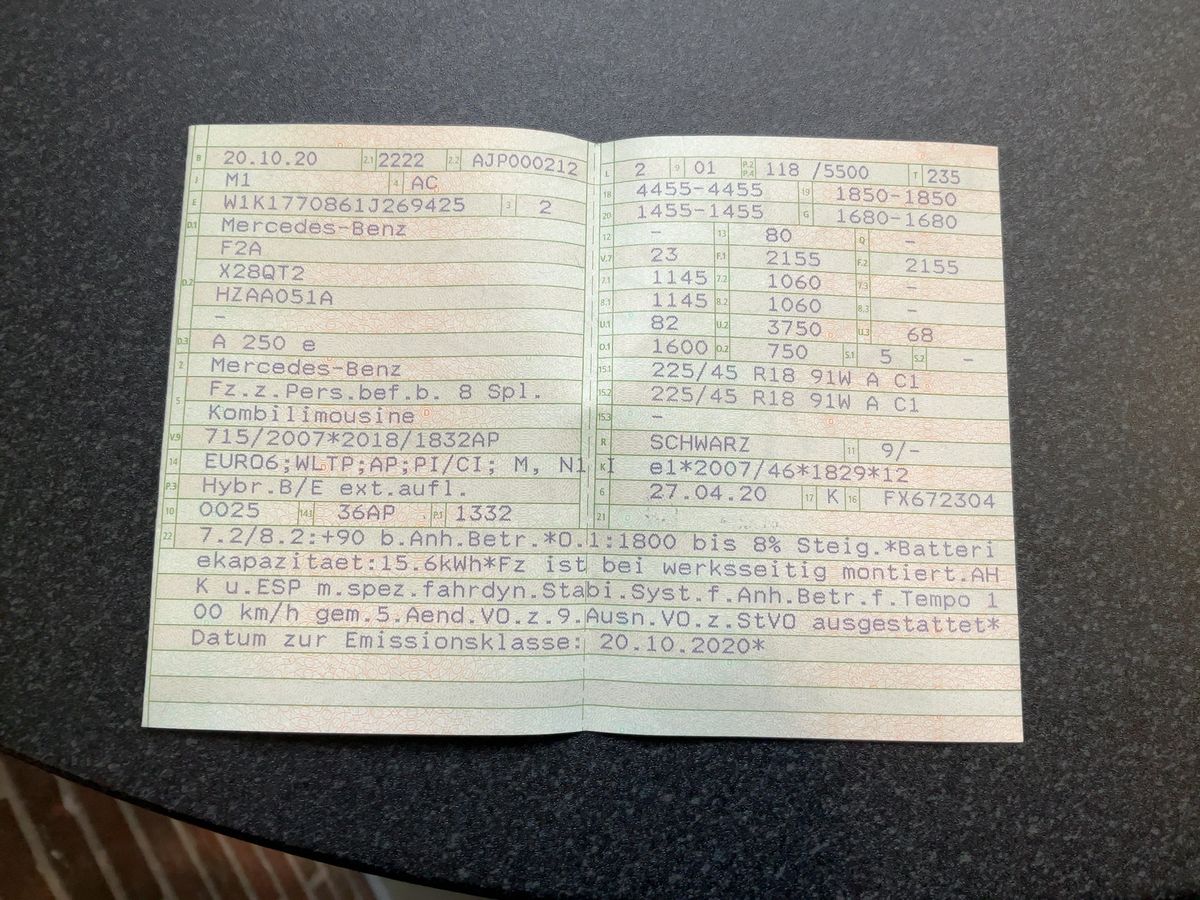 B 20.10.20 2.1 2222 2.2 AJP000212
J M1 4 AC
E W1K1770861J269425 3 2
D.1 Mercedes-Benz
F2A
D.2 X28QT2
HZAA051A
–
D.3 A 250 e
2 Mercedes-Benz
5 Fz.z.Pers.bef.b. 8 Spl.
Kombilimousine
V.9 715/2007*2018/1832AP
14 EURO6;WLTP;AP;PI/CI; M, N1 I
P.3 Hybr.B/E ext.aufl.
10 0025 14.1 36AP P.1 1332
L 2 9 01 P.2 P.4 118 /5500 T 235
18 4455-4455 19 1850-1850
20 1455-1455 G 1680-1680
12 – 13 80 Q –
V.7 23 F.1 2155 F.2 2155
7.1 1145 7.2 1060 7.3 –
8.1 1145 8.2 1060 8.3 –
U.1 82 U.2 3750 U.3 68
O.1 1600 O.2 750 S.1 5 S.2 –
15.1 225/45 R18 91W A C1
15.2 225/45 R18 91W A C1
15.3 –
R SCHWARZ 11 9/-
K e1*2007/46*1829*12
6 27.04.20 17 K 16 FX672304
21
22 7.2/8.2:+90 b.Anh.Betr.*O.1:1800 bis 8% Steig.*Batteri
ekapazitaet:15.6kWh*Fz ist bei werksseitig montiert.AH
K u.ESP m.spez.fahrdyn.Stabi.Syst.f.Anh.Betr.f.Tempo 1
00 km/h gem.5.Aend.VO.z.9.Ausn.VO.z.StVO ausgestattet*
Datum zur Emissionsklasse: 20.10.2020*